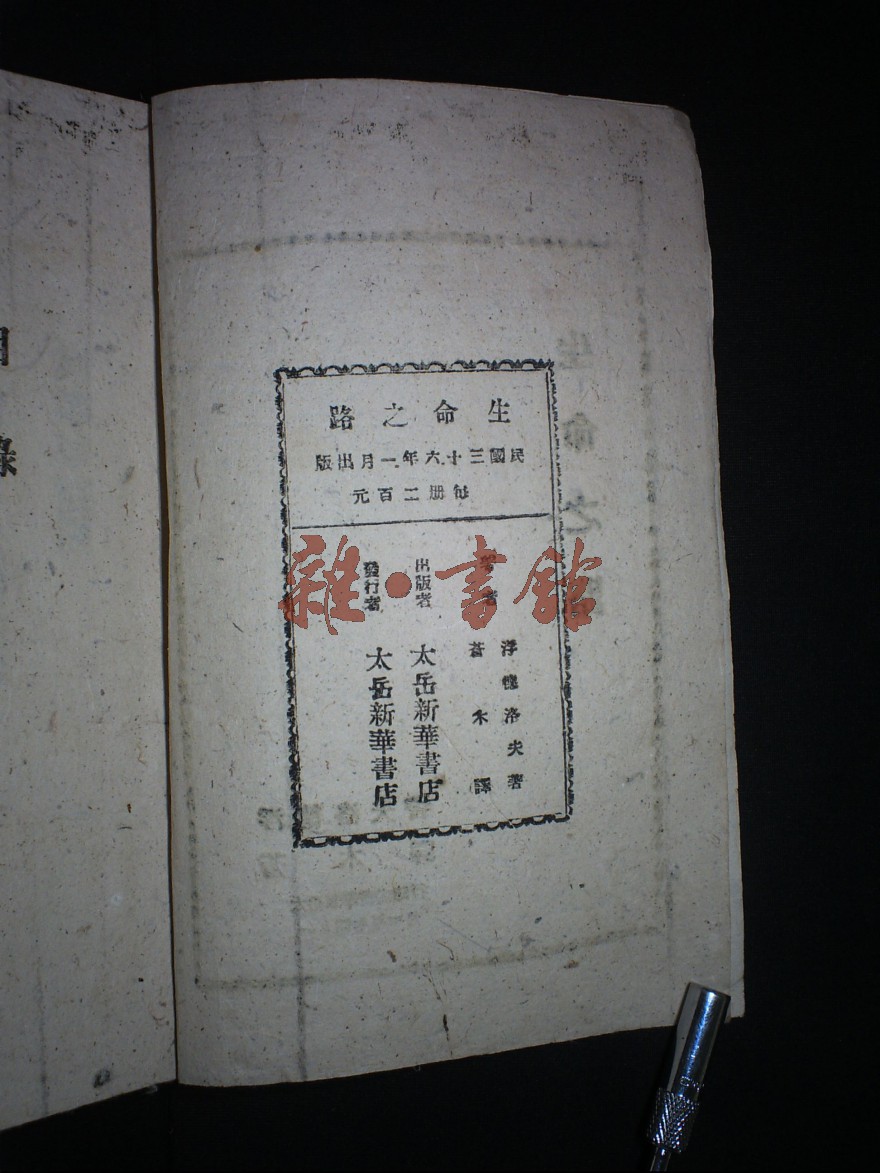 生命之路
民國三十六年一月出版
每册二百元
著者
浮愧洛夫著
蒼木譯
出版者 太岳新華書店
發行者 太岳新華書店
雜·書館